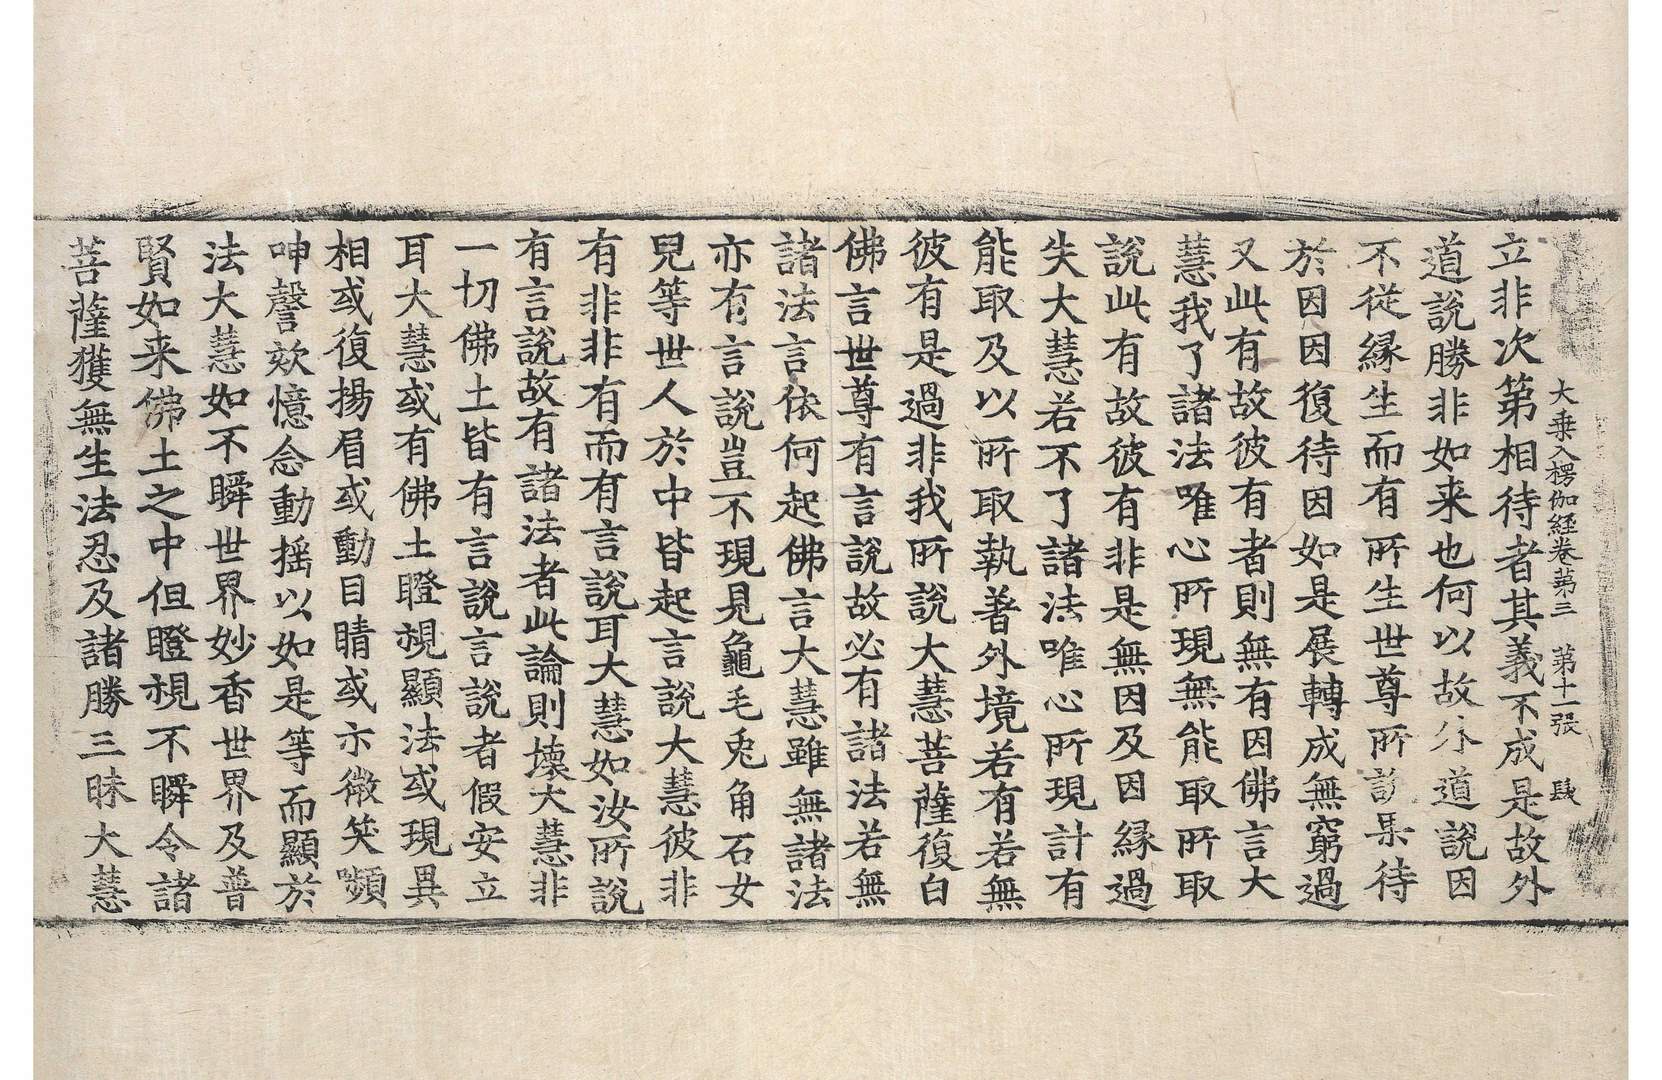 大乗入楞伽経卷苐三　苐十一張　㱐
立非次第相待者其義不成是故外
道說勝非如来也何以故外道說因
不從緣生而有所生世尊所說果待
於因因復待因如是展轉成無窮過
又此有故彼有者則無有因佛言大
慧我了諸法唯心所現無能取所取
說此有故彼有非是無因及因緣過
失大慧若不了諸法唯心所現計有
能取及以所取執著外境若有若無
彼有是過非我所說大慧菩薩復白
佛言世尊有言說故必有諸法若無
諸法言依何起佛言大慧雖無諸法
亦有言說豈不現見龜毛兎角石女
兒等世人於中皆起言說大慧彼非
有非非有而有言說耳大慧如汝所說
有言說故有諸法者此論則壞大慧非
一切佛土皆有言說言說者假安立
耳大慧或有佛土瞪視顯法或現異
相或復揚眉或動目睛或示微笑嚬
呻謦欬憶念動揺以如是等而顯於
法大慧如不瞬世界妙香世界及普
賢如来佛土之中但瞪視不瞬令諸
菩薩獲無生法忍及諸勝三昧大慧